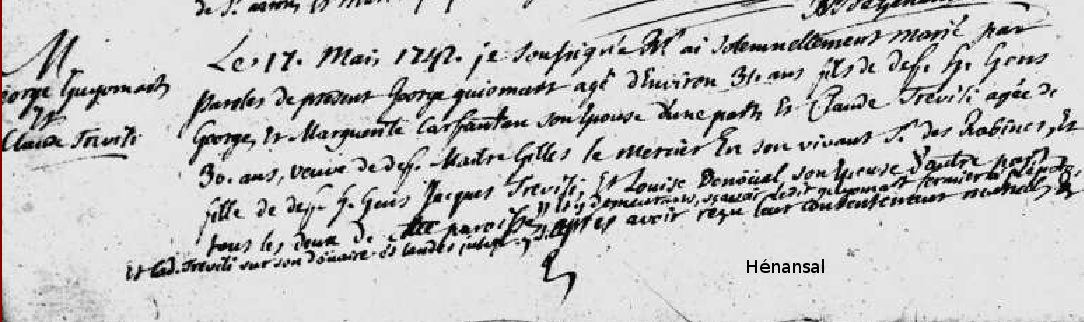 de St.
M
George Guyomart
Et
Claude Treviti
Le 17. Mai 1742. je soussigné Rr ai solemnellement marié par
paroles de present George guiomart agé d'Environ 31. ans fils de def. h. Gens
George, Et Marguerite Carfantan son Epouse d'une part, Et Claude Treviti agée de
30. ans, veuve de def. Maitre Gilles le mercier En son vivant Sr. des Rabines, Et
fille de def. h. Gens Jacques Treviti, Et Louise Denoüal, son Epouse d'autre part,
tous les deux de cette paroisse, y demeurans, sçavoir ledit guyomart fermier
Et lad. Treviti sur son doüaire és landes apres avoir reçu leur consentement mutuel
Hénansal